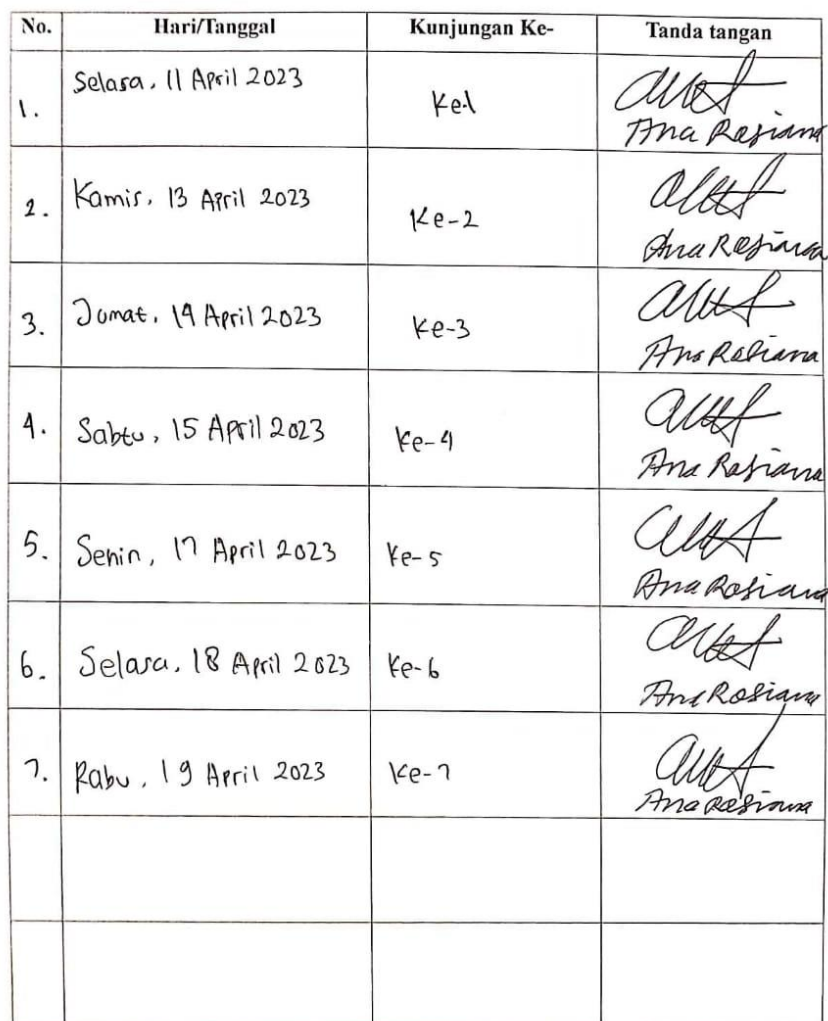 No. Hari/Tanggal Kunjungan Ke- Tanda tangan
1. Selasa, 11 April 2023 Ke-1
Ana Rosiana
2. Kamis, 13 April 2023 Ke-2
Ana Rosiana
3. Jumat, 14 April 2023 Ke-3
Ana Rosiana
4. Sabtu, 15 April 2023 Ke-4
Ana Rosiana
5. Senin, 17 April 2023 Ke-5
Ana Rosiana
6. Selasa, 18 April 2023 Ke-6
Ana Rosiana
7. Rabu, 19 April 2023 Ke-7
Ana Rosiana